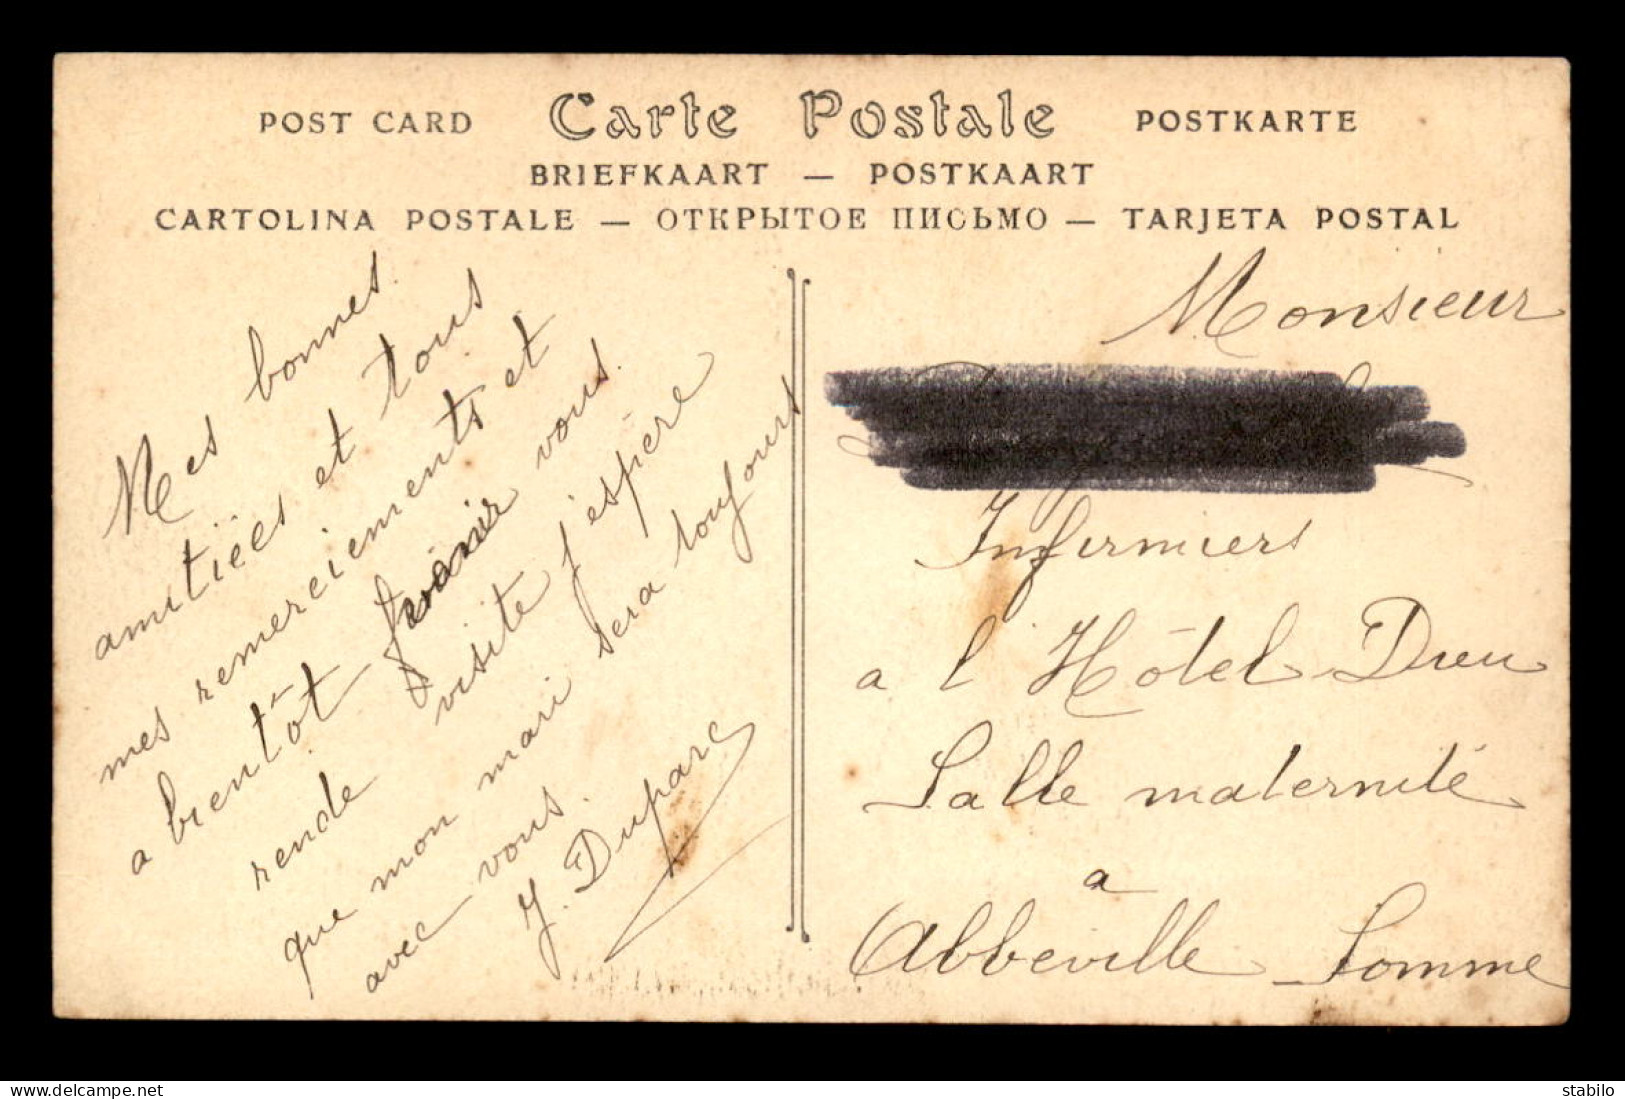 POST CARD Carte Postale POSTKARTE
BRIEFKAART — POSTKAART
CARTOLINA POSTALE — ОТКРЫТОЕ ПИСЬМО — TARJETA POSTAL
Mes bonnes
amitiées et tous
mes remerciements et
a bientôt vous
rende visite j'espère
que mon mari sera toujours
avec vous.
Y. Duparc
Monsieur
Infirmiers
a l Hôtel Dieu
Salle maternité
a
Abbeville Somme
delcampe.net
stabilo